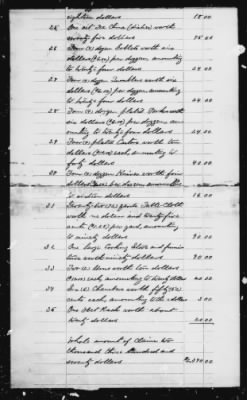 eighteen dollars 18.00
25 One set De China (dishes) worth
seventy five dollars 75.00
26 Four (4) dozen Goblets worth six
dollars ($6.00) per dozen, amounting
to twenty four dollars 24.00
27 Four (4) dozen Tumblers worth six
dollars ($6.00) per dozen, amounting
to twenty four dollars 24.00
28 Four (4) dozen plated Forks worth
six dollars ($6.00) per dozen, amo
unting to twenty four dollars 24.00
29 Four (4) plated Castors worth ten
dollars ($10.00) each amounting to
forty dollars 40.00
30 Four (4) dozen Knives worth four
dollars per dozen amounting
to sixteen dollars 16.00
31 Seventy two (72) yards Table Cloth
worth one dollar and twenty five
cents ($1.25) per yard, amounting
to ninety dollars 90.00
32 One large Cooking Stove and furni
ture worth ninety dollars 90.00
33 Two (2) worth ten dollars
each, amounting to twenty dollars 20.00
34 Six (6) Chambers worth fifty (50)
cents each, amounting to three dollars 3.00
35 One Hat Rack worth about
twenty dollars 20.00
Whole amount of claim two
thousand three hundred and
seventy dollars $2,370.00